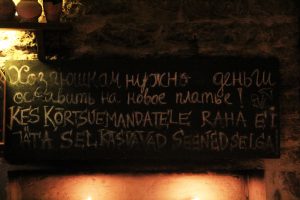 Хозяюшкам нужно деньги
оставить на новое платье!
KES KÕRTSUEMANDATELE RAHA EI
JÄTA SELKASVAVAD SEENED SELGA